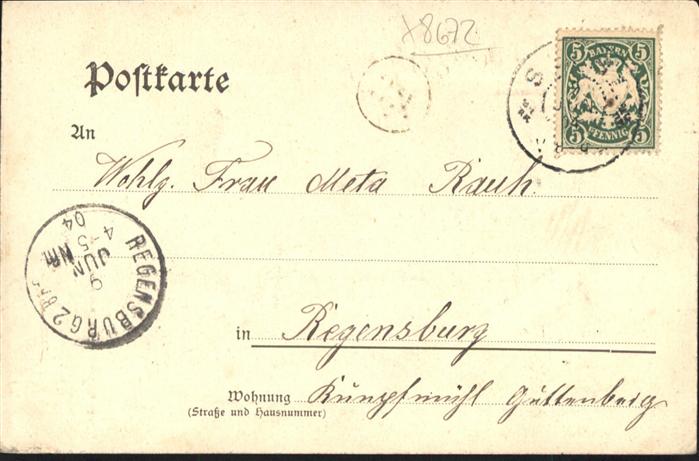 x8672
Postkarte
5 BAYERN 5
5 PFENNIG 5
An
Wohlg. Frau Meta Rauh.
REGENSBURG 2
9
JUN
NM
4-5
04
in Regensburg
Wohnung Kumpfmühl Guttenberg
(Straße und Hausnummer)